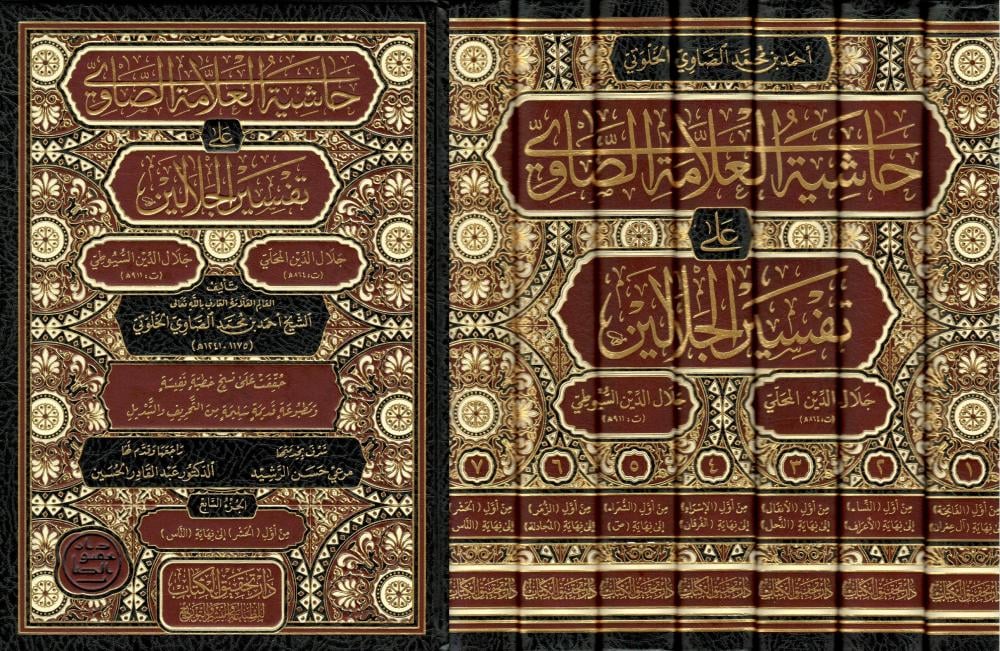 حاشية العلامة الصاوي
على
تفسير الجلالين
جلال الدين المحلي
(ت: ٨٦٤هـ)
جلال الدين السيوطي
(ت: ٩١١هـ)
تأليف
العالم العلامة العارف بالله تعالى
الشيخ أحمد بن محمد الصاوي الخلوتي
(١١٧٥ - ١٢٤١هـ)
حققت على نسخ خطية نفيسة
ومطبوعة قديمة سليمة من التحريف والتبديل
شرف بخدمتها
مرعي حسن الرشيد
راجعها وقدم لها
الدكتور عبد القادر الحسين
الجزء السابع
من أول (الحشر) إلى نهاية (الناس)
دار تحقيق الكتاب
للطباعة والنشر والتوزيع
أحمد بن محمد الصاوي الخلوتي
حاشية العلامة الصاوي
على
تفسير الجلالين
جلال الدين المحلي
(ت: ٨٦٤هـ)
جلال الدين السيوطي
(ت: ٩١١هـ)
١
٢
٣
٤
٥
٦
٧
من أول (الفاتحة)
إلى نهاية (آل عمران)
من أول (النساء)
إلى نهاية (الأعراف)
من أول (الأنفال)
إلى نهاية (النحل)
من أول (الإسراء)
إلى نهاية (الفرقان)
من أول (الشعراء)
إلى نهاية (ص)
من أول (الزمر)
إلى نهاية (المجادلة)
من أول (الحشر)
إلى نهاية (الناس)
دار تحقيق الكتاب
دار تحقيق الكتاب
دار تحقيق الكتاب
دار تحقيق الكتاب
دار تحقيق الكتاب
دار تحقيق الكتاب
دار تحقيق الكتاب